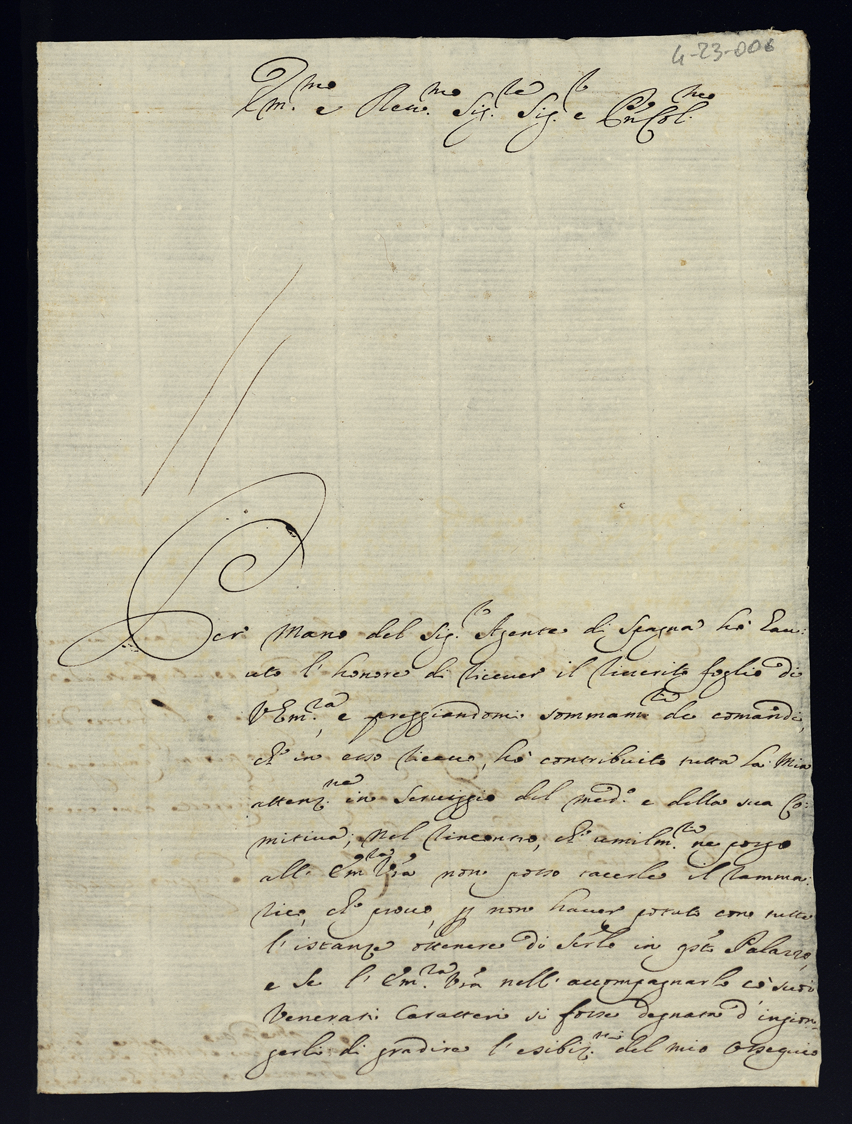 4-23-006
Em.mo e Reu.mo Sig.re Sig.r e Pñ Col.mo
Per mano del Sig.r Agente di Spagna hò hau:
uto l'honore di riceuer il riuerito foglio di
V Em.za, e preggiandomi sommam.te de comandi,
ch'in esso riceuo, hò contribuito tutta la mia
attenz.ne in seruiggio del med.o e della sua Co:
mitiua; nel rincontro, ch'umilm.te ne porgo
all'Em.za Vrã non posso tacerle il ramma:
rico, che prouo, p non hauer potuto con tutte
l'istanze ottenere di seruirlo in qsto Palazzo,
e se l'Em.za Vrã nell'accompagnarlo cò suoi
Venerati Caratteri si fosse degnata d'ingion:
gerli di gradire l'esibiz.ne del mio ossequio